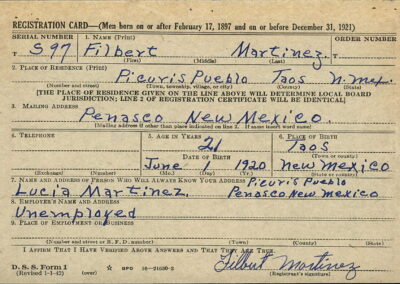 REGISTRATION CARD—(Men born on or after February 17, 1897 and on or before December 31, 1921)
SERIAL NUMBER 1. NAME (Print) ORDER NUMBER
T S97 Filbert Martinez T
(First) (Middle) (Last)
2. PLACE OF RESIDENCE (Print)
Picuris Pueblo Taos N. Mex.
(Number and street) (Town, township, village, or city) (County) (State)
[THE PLACE OF RESIDENCE GIVEN ON THE LINE ABOVE WILL DETERMINE LOCAL BOARD
JURISDICTION; LINE 2 OF REGISTRATION CERTIFICATE WILL BE IDENTICAL]
3. MAILING ADDRESS
Penasco New Mexico.
[Mailing address if other than place indicated on line 2. If same insert word same]
4. TELEPHONE 5. AGE IN YEARS 6. PLACE OF BIRTH
21 Taos
DATE OF BIRTH (Town or county)
June 1 1920 New Mexico
(Exchange) (Number) (Mo.) (Day) (Yr.) (State or country)
7. NAME AND ADDRESS OF PERSON WHO WILL ALWAYS KNOW YOUR ADDRESS Picuris Pueblo
Lucia Martinez. Penasco New Mexico
8. EMPLOYER'S NAME AND ADDRESS
Unemployed
9. PLACE OF EMPLOYMENT OR BUSINESS
(Number and street or R. F. D. number) (Town) (County) (State)
I AFFIRM THAT I HAVE VERIFIED ABOVE ANSWERS AND THAT THEY ARE TRUE.
D. S. S. Form 1 GPO 16—21630-2 Filbert Martinez
(Revised 1-1-42) (Registrant's signature)